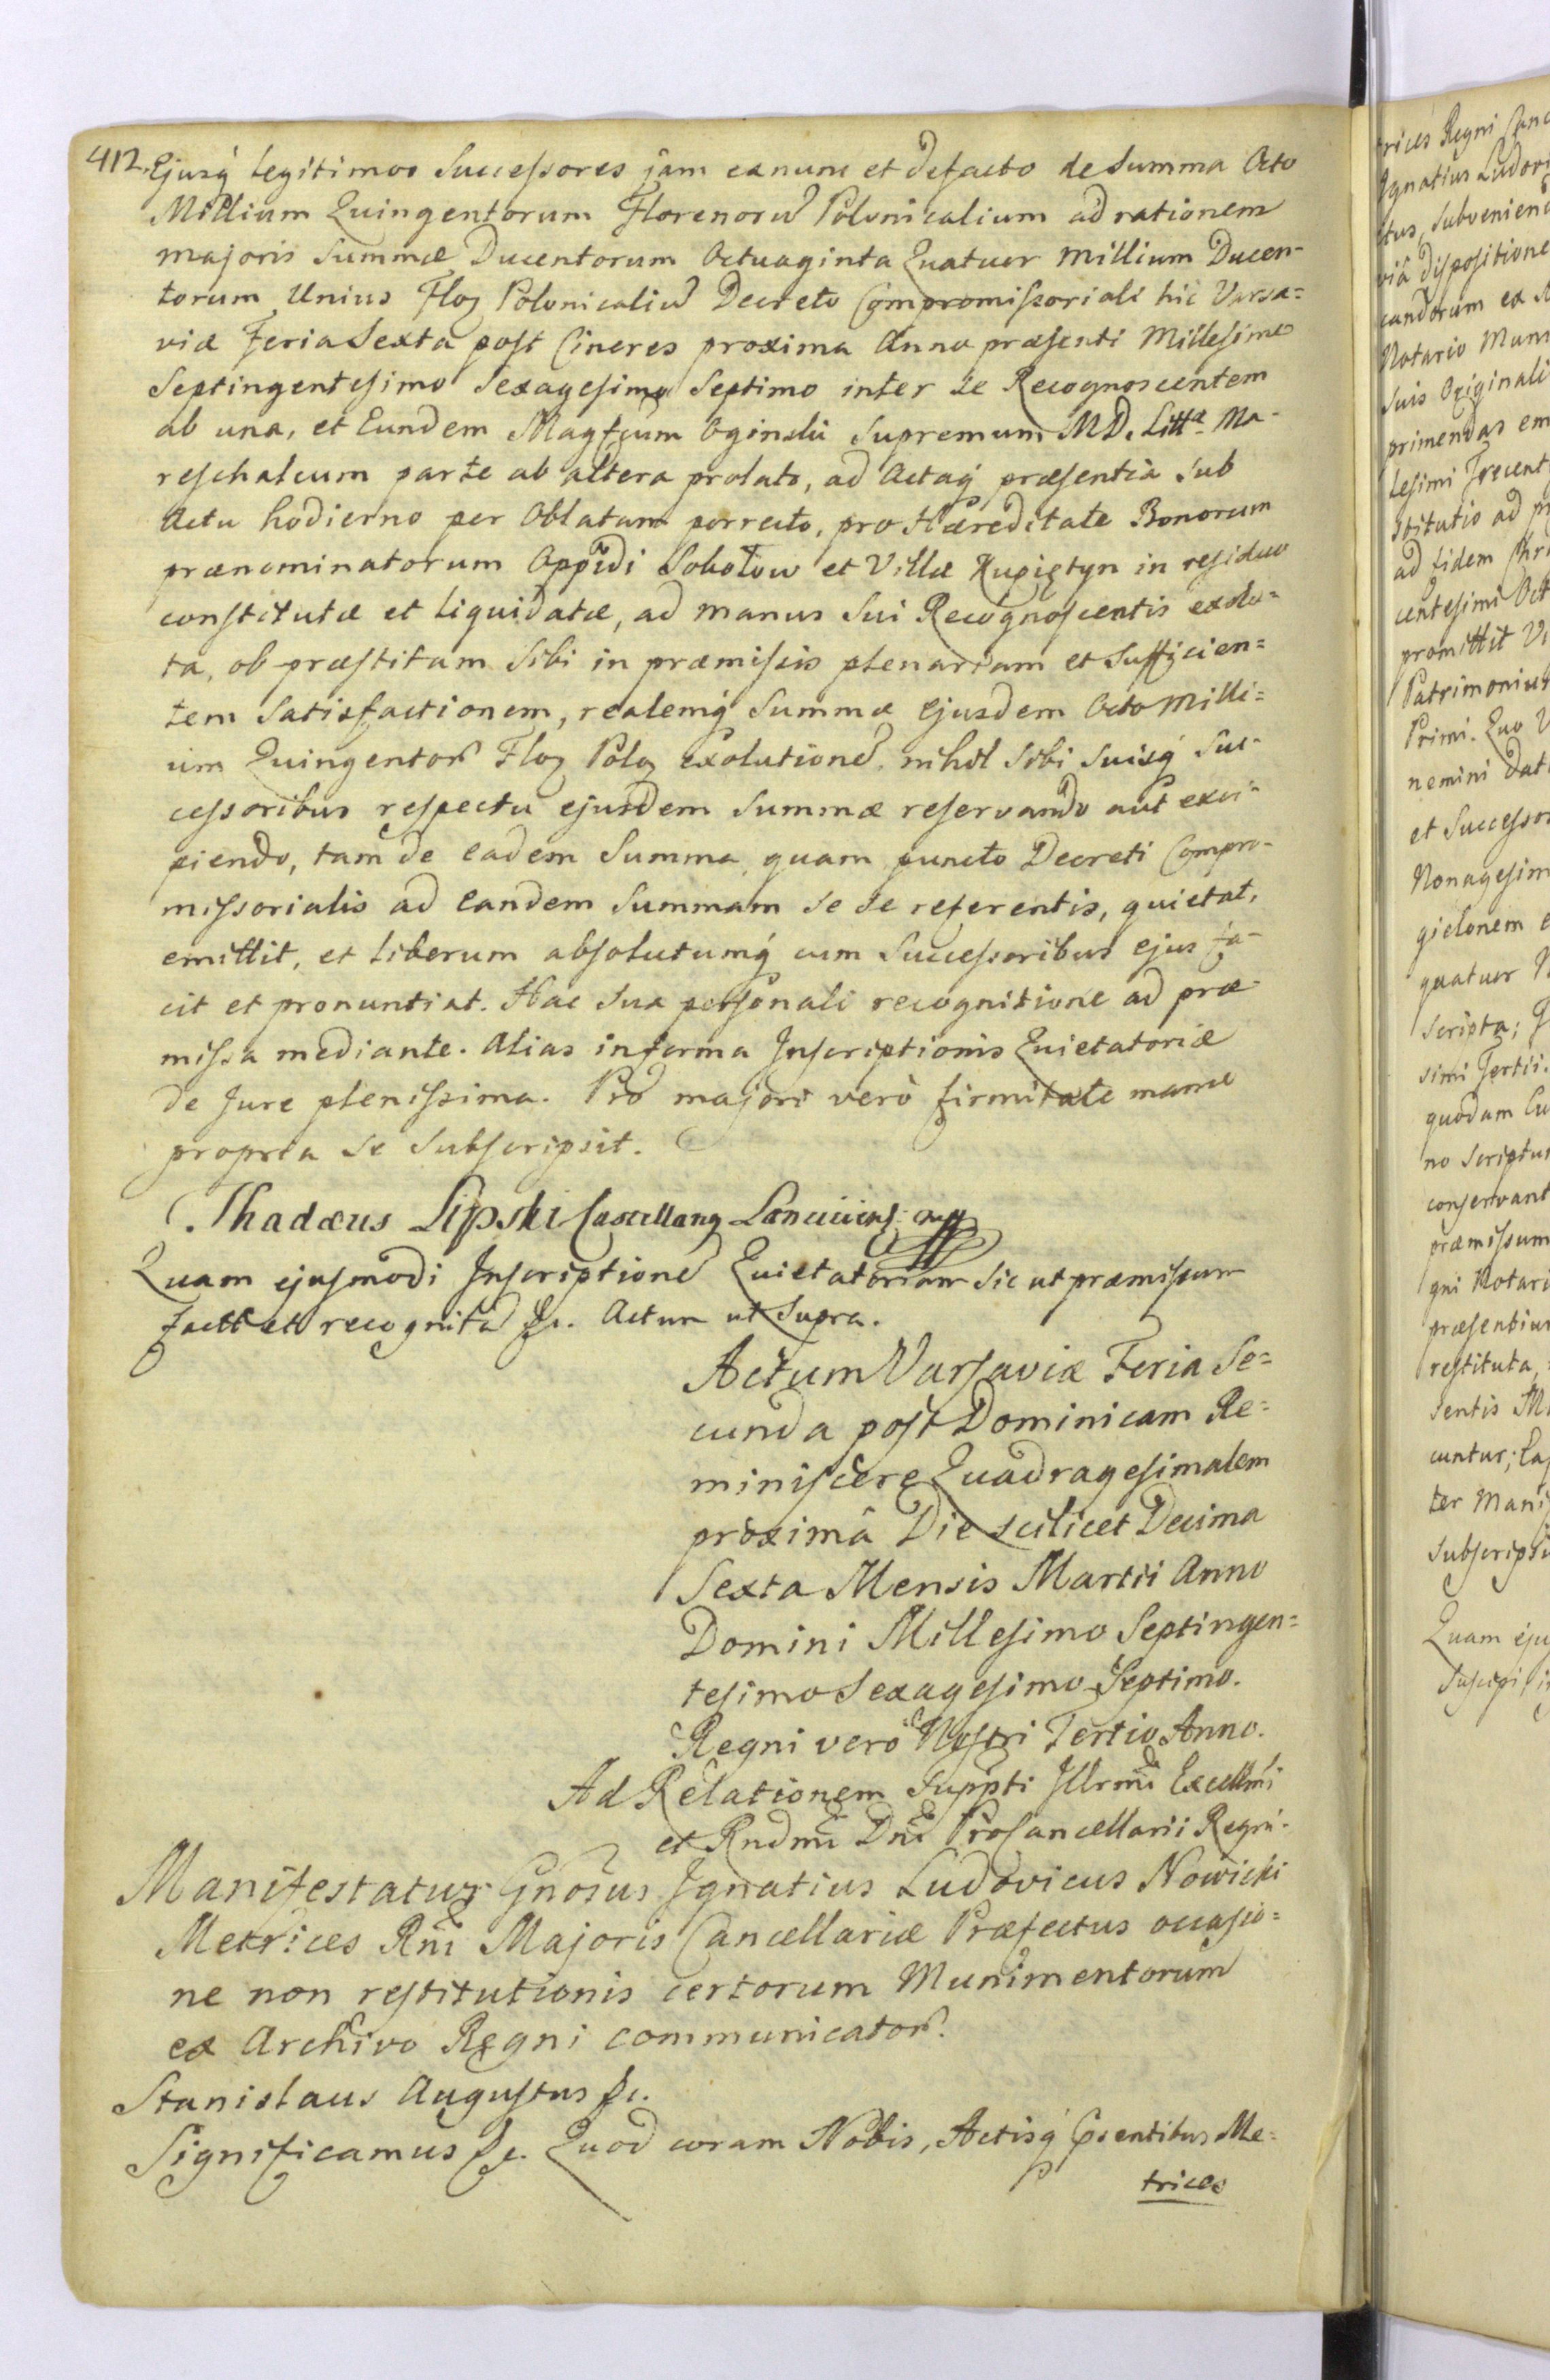 412. Ejusq́ legitimos Successores jam exnunc et defacto de Summa Octo
Millium Quingentorum Florenorũ Polonicalium ad rationem
majoris Summæ Ducentorum Octuaginta Quatuor millium Ducen-
torum Unius Floꝝ Polonicaliũ Decreto Compromissoriali hic Varsa=
viæ Feria Sexta post Cineres proxima Anno præsenti Millesimo
Septingentesimo Sexagesimo Septimo inter se Recognoscentem
ab una, et Eundem Magfcum Oginski Supremum M.D. Littæ Ma-
reschalcum parte ab altera prolato, ad Actaq́ præsentia sub
Actu hodierno per Oblatam porrecto, pro Hæreditate Bonorum
prænominatorum Oppidi Sokołow et Villæ Kupiętyn in residuo
constitutæ et liquidatæ, ad manus Sui Recognoscentis exolu=
ta, ob præstitam Sibi in præmissis plenariam et Sufficien=
tem Satisfactionem, realemq́ Summæ Ejusdem Octo Milli=
um Quingentor̃ Floꝝ Poloꝝ exolutionẽ, nihil Sibi Suisq́ Suc-
cessoribus respectu ejusdem Summæ reservando aut exci-
piendo, tam de eadem Summa, quam puncto Decreti Compro-
missorialis ad eandem Summam se se referentis, quietat,
emittit, et liberum absolutumq́ cum Successoribus ejus fa-
cit et pronuntiat. Hac Sua personali recognitione ad præ-
missa mediante. Alias in forma Inscriptionis Quietatoriæ
de Jure plenissima. Pro majori verò firmitate manu
propria se Subscripsit.
Thadæus Lipski Castellanꝯ Lanciciens mp
Quam ejusmodi Inscriptionẽ Quietatoriam sic ut præmissum
factã et recognitã &c. Actum ut Supra.
Actum Varsaviæ Feria Se=
cunda post Dominicam Re=
miniscere Quadragesimalem
proximâ Die scilicet Decima
Sexta Mensis Martii Anno
Domini Millesimo Septingen=
tesimo Sexagesimo Septimo.
Regni verò Nostri Tertio Anno.
Ad Relationem Suppsti Illrmi Excellmi
et Rndmi Dni ProCancellarii Regni.
Manifestatur Gnosus Ignatius Ludovicus Nowicki
Metrices Rni Majoris Cancellariæ Præfectus occasio=
ne non restitutionis certorum Munimentorum
ex Archivo Regni communicator̃.
Stanislaus Augustus &c.
Significamus &c. Quod coram Nobis, Actisq́ psentibus Me=
trices
trices Regni Canc
Ignatius Ludovi
ctus, subveniend
viâ dispositione
candorum ex A
Notario Mun
Suis Originali
primendas em
lesimi Trecent
stitutio ad pr
ad fidem Chr
centesimi Oct
promittit Vi
Patrimonium
Primi. Quo V
nemini dat
et Successor
Nonagesim
gielonem e
quatuor N
scripta; Q
simi Tertii.
quodam Cu
no scriptu
conservant
præmissum
gni Notari
præsentiu
restituta,
sentis M
cuntur; Ea
ter Manif
subscripsi
Quam eju
suscepi si